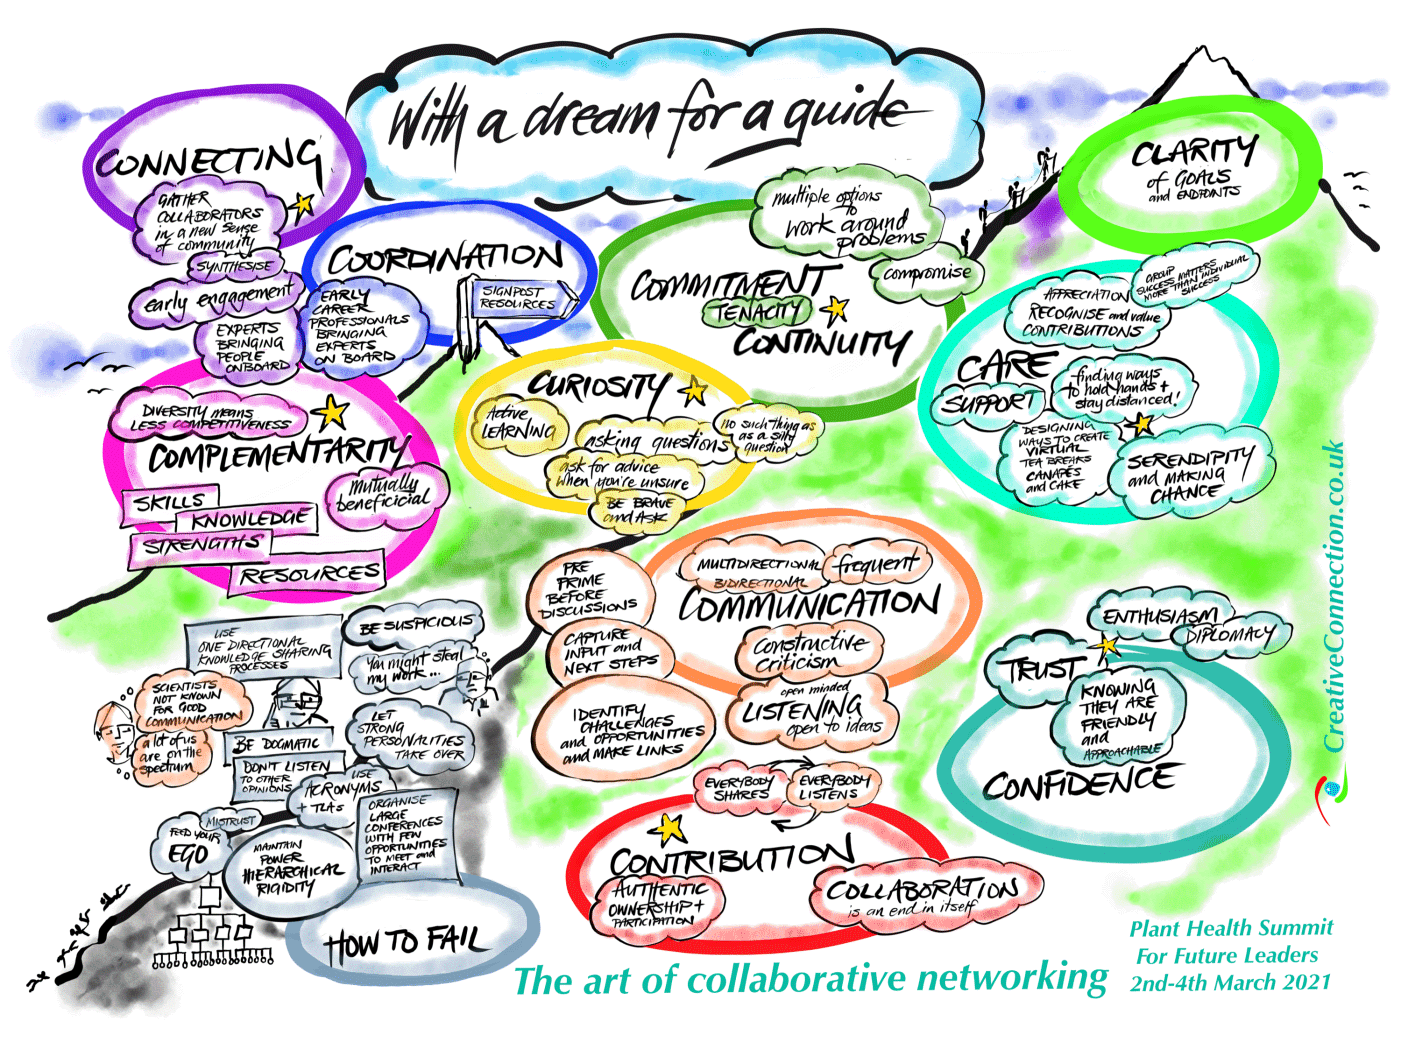 With a dream for a guide
CONNECTING
GATHER
COLLABORATORS
in a new sense
of community
SYNTHESISE
early engagement
EXPERTS
BRINGING
PEOPLE
ONBOARD
COORDINATION
SIGNPOST
RESOURCES
EARLY
CAREER
PROFESSIONALS
BRINGING
EXPERTS
ON BOARD
multiple options
to
work around
problems
compromise
COMMITMENT
TENACITY
CONTINUITY
CLARITY
of GOALS
and ENDPOINTS
GROUP
SUCCESS MATTERS
MORE THAN INDIVIDUAL
SUCCESS
APPRECIATION
RECOGNISE and value
CONTRIBUTIONS
CARE
SUPPORT
finding ways
to hold hands +
stay distanced!
DESIGNING
WAYS TO CREATE
VIRTUAL
TEA BREAKS
CANAPÉS
and CAKE
SERENDIPITY
and MAKING
CHANCE
DIVERSITY means
LESS COMPETITIVENESS
COMPLEMENTARITY
Mutually
beneficicial
SKILLS
KNOWLEDGE
STRENGTHS
RESOURCES
CURIOSITY
Active
LEARNING
asking questions
no such thing as
as a silly
question
ask for advice
when you're unsure
BE BRAVE
and ASK
MULTIDIRECTIONAL
BIDIRECTIONAL
frequent
COMMUNICATION
PRE
PRIME
BEFORE
DISCUSSIONS
CAPTURE
INPUT and
NEXT STEPS
IDENTIFY
CHALLENGES
and OPPORTUNITIES
and MAKE LINKS
Constructive
criticism
open minded
LISTENING
open to ideas
ENTHUSIASM
DIPLOMACY
TRUST
KNOWING
THEY ARE
FRIENDLY
and
APPROACHABLE
CONFIDENCE
EVERYBODY
SHARES
EVERYBODY
LISTENS
CONTRIBUTION
AUTHENTIC
OWNERSHIP +
PARTICIPATION
COLLABORATION
is an end in itself
USE
ONE DIRECTIONAL
KNOWLEDGE SHARING
PROCESSES
BE SUSPICIOUS
You might steal
my work...
SCIENTISTS
NOT KNOWN
FOR GOOD
COMMUNICATION
a lot of us
are on the
spectrum
BE DOGMATIC
LET
STRONG
PERSONALITIES
TAKE OVER
DON'T LISTEN
TO OTHER
OPINIONS
USE
ACRONYMS
+ TLAs
ORGANISE
LARGE
CONFERENCES
WITH FEW
OPPORTUNITIES
TO MEET and
INTERACT
MISTRUST
FEED YOUR
EGO
MAINTAIN
POWER
HIERARCHICAL
RIGIDITY
HOW TO FAIL
The art of collaborative networking
Plant Health Summit
For Future Leaders
2nd-4th March 2021
CreativeConnection.co.uk